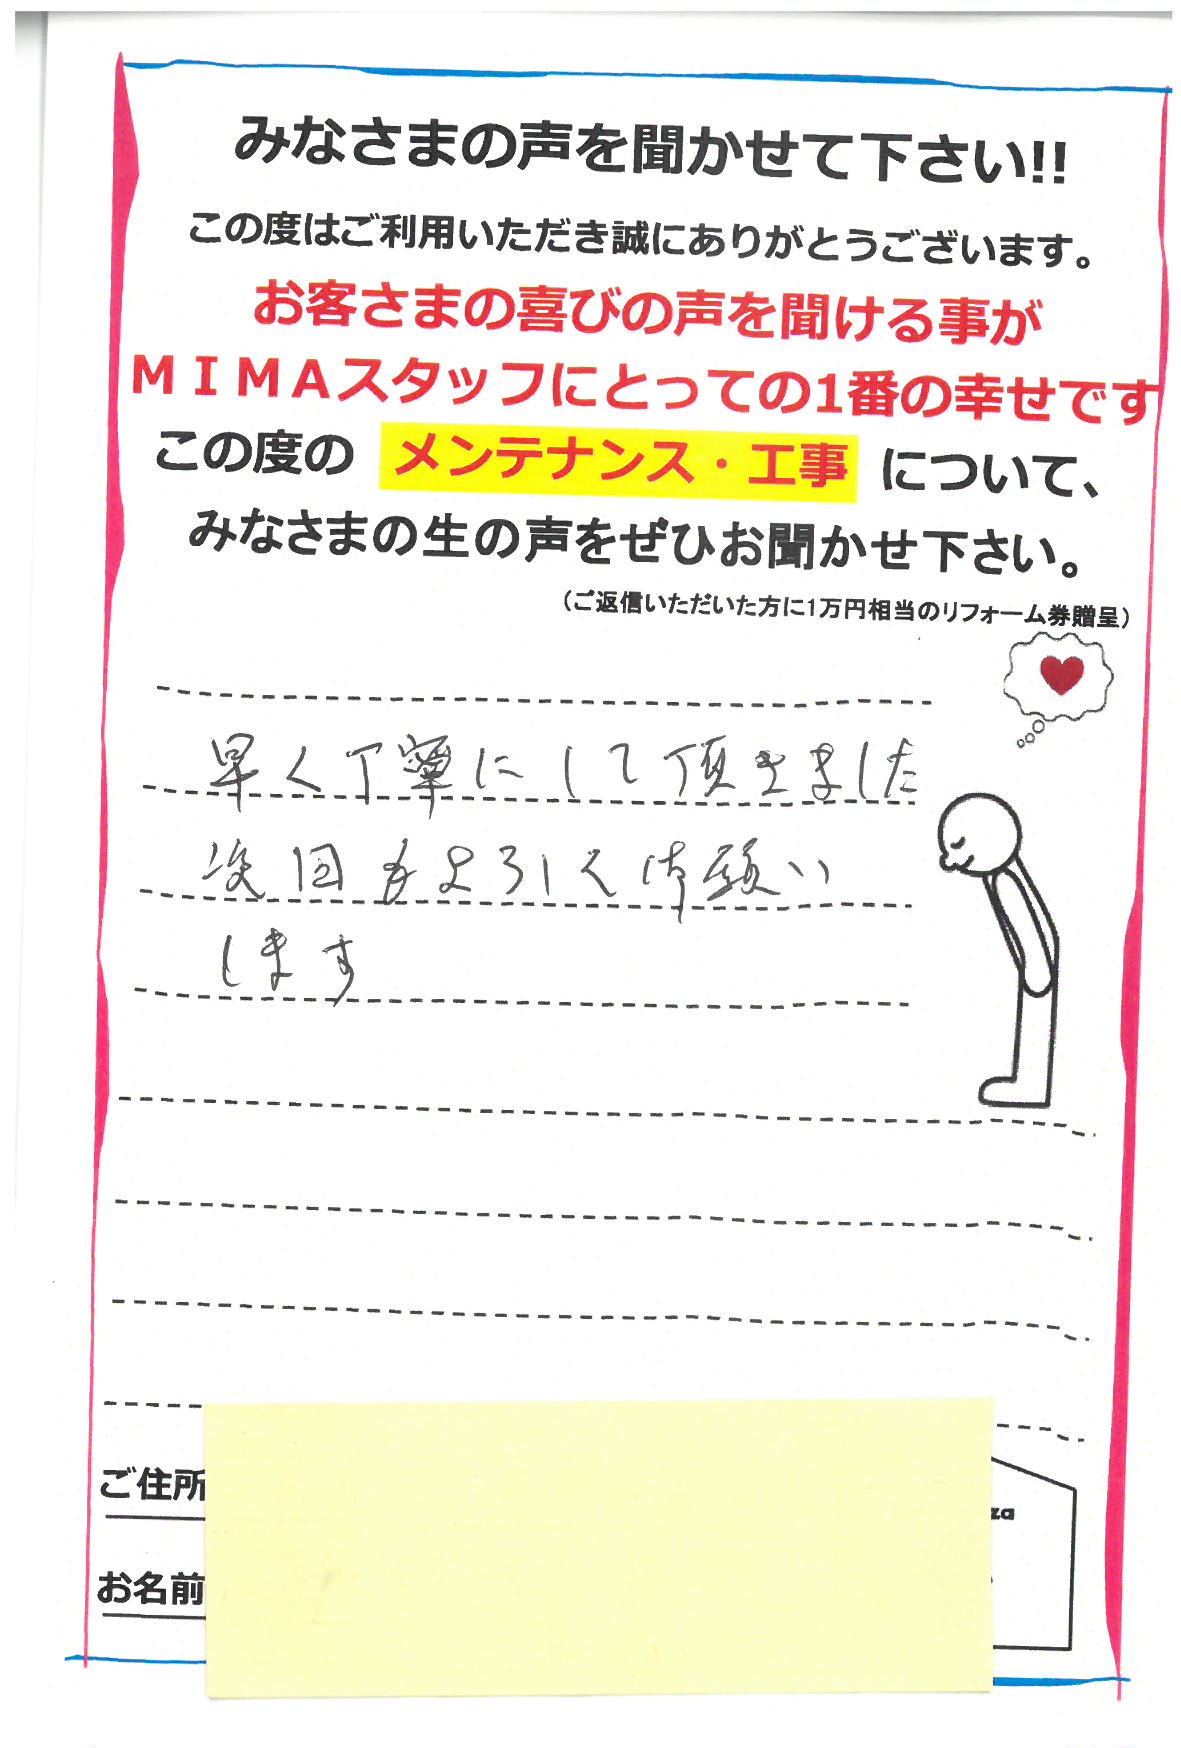 みなさまの声を聞かせて下さい!!
この度はご利用いただき誠にありがとうございます。
お客さまの喜びの声を聞ける事が
ＭＩＭＡスタッフにとっての1番の幸せです
この度の メンテナンス・工事 について、
みなさまの生の声をぜひお聞かせ下さい。
（ご返信いただいた方に1万円相当のリフォーム券贈呈）
早く丁寧にして頂きました
次回もよろしくお願い
します
ご住所
za
お名前